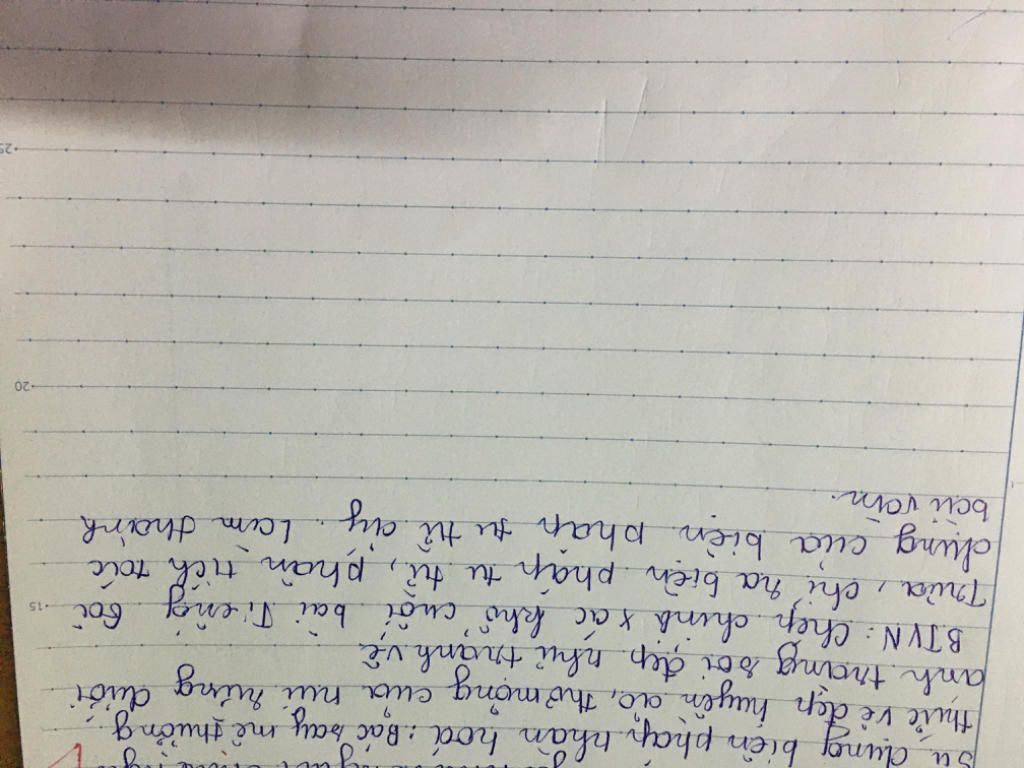 sử dụng biện pháp nhân hoá: Bác say mê thưởng
thức vẻ đẹp huyền ảo, thơ mộng của núi rừng dưới
ánh trăng soi đẹp như tranh vẽ
BTVN: Chép chính xác khổ cuối bài Tiếng gà
15
Trưa, chỉ ra biện pháp tu từ, phân tích tác
dụng của biện pháp tu từ ấy. Làm thành
bài văn.
20
25